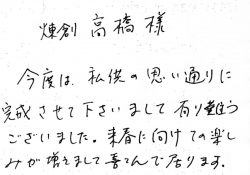 煉創 高橋様
今度は、私供の思い通りに
完成させて下さいまして 有り難う
ございました。来春に向けての楽し
みが増えまして喜こんで居ります。